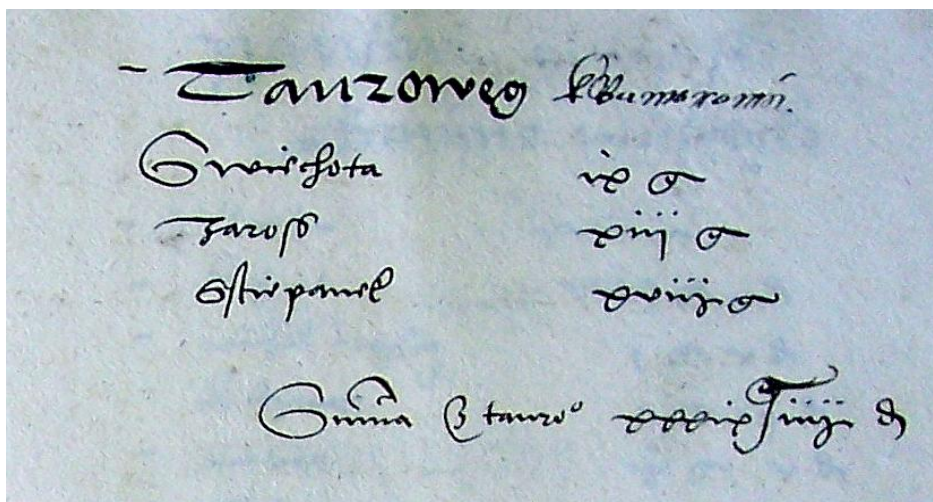 Tauzoweg
Swiechota ix g
Zaross xiij g
Sstiepanek xviij g
Summa tauzo xxxix iiij d